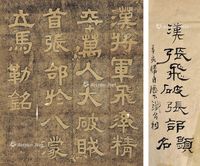 漢張飛破張郃銘
漢將軍飛率精
卒萬人大破賊
首張郃於八濛
立馬勒銘